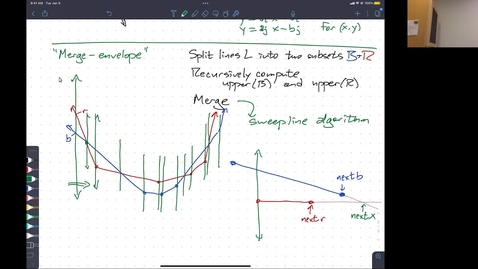 9:41 AM Tue Jan 9
y = aj x - bj for (x,y)
"Merge-envelope"
Split lines L into two subsets B + R
Recursively compute
upper(B) and upper(R)
Merge
sweepline algorithm
r
b
next b
next r
next x